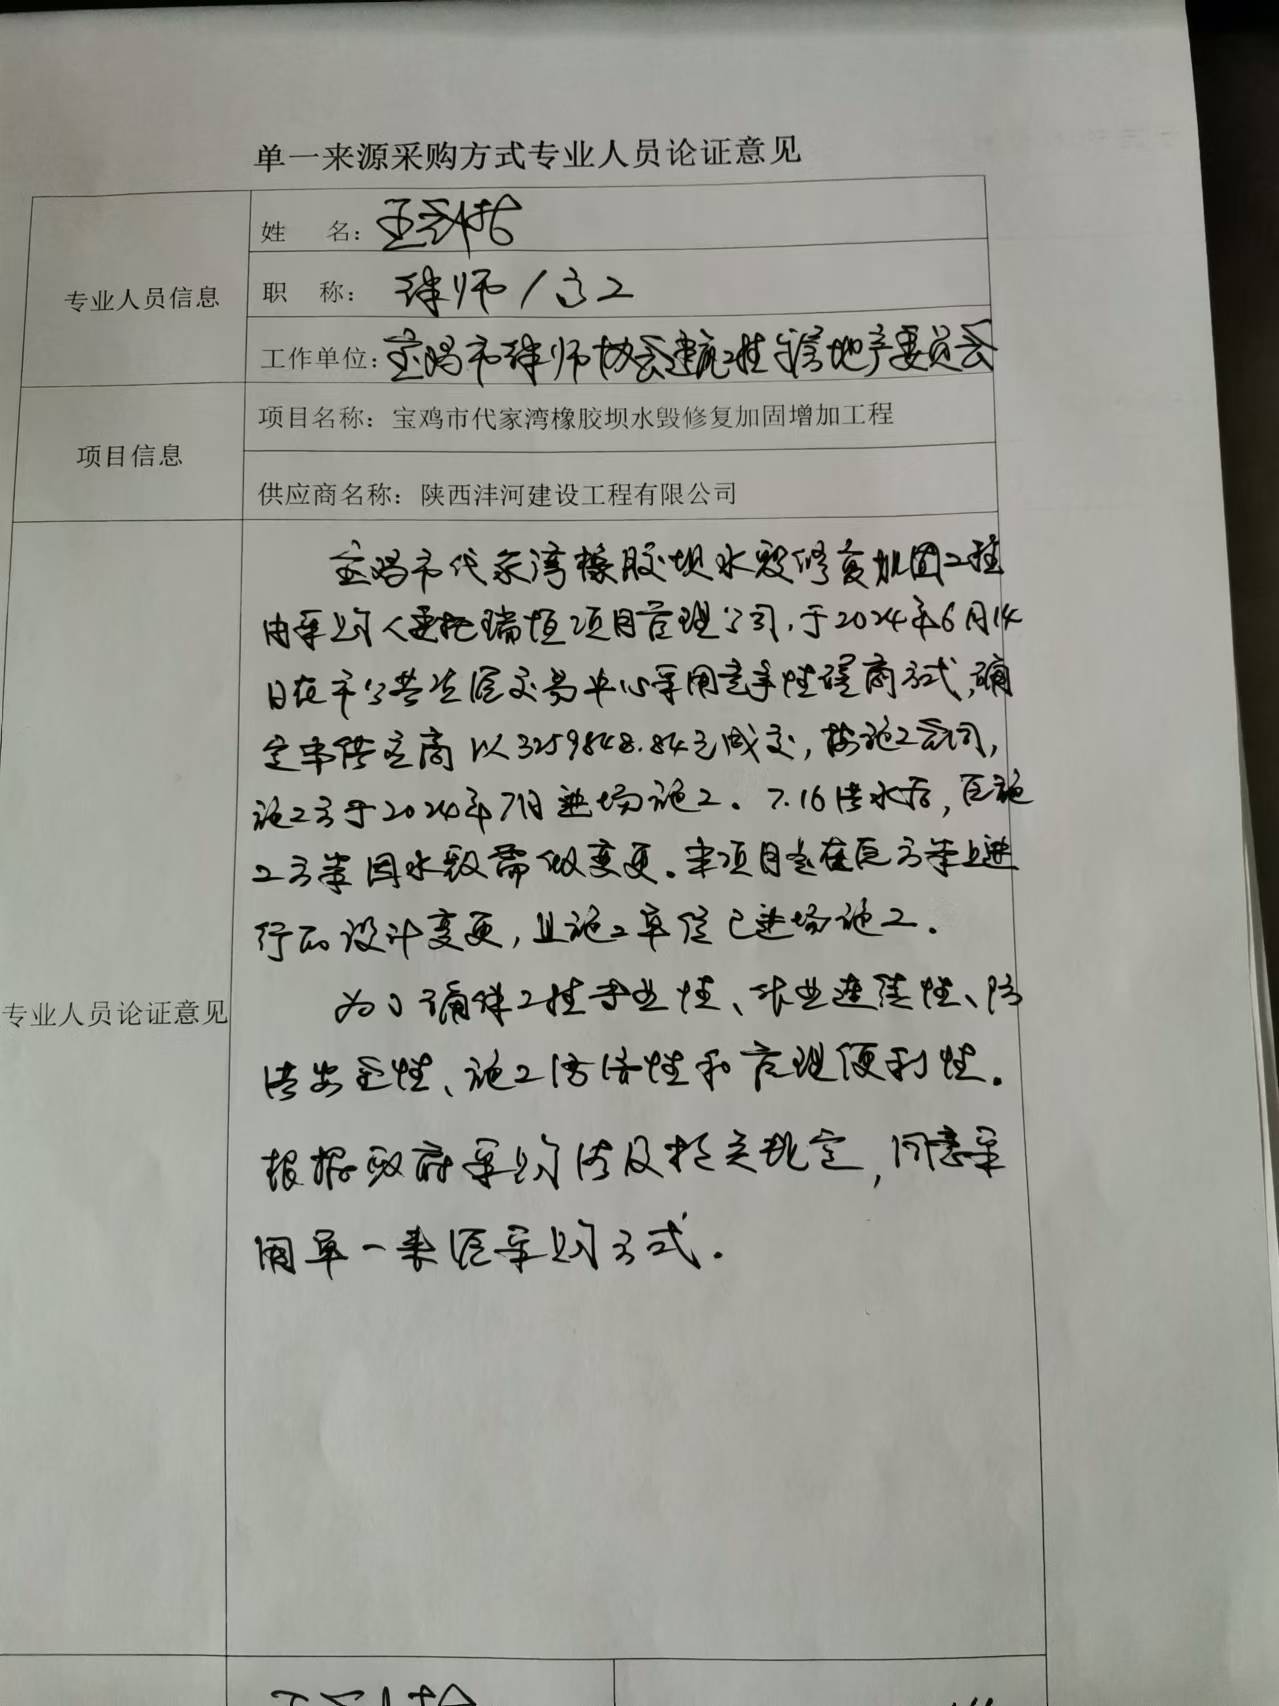 单一来源采购方式专业人员论证意见
专业人员信息
姓 名：王
职 称：律师/高工
工作单位：宝鸡市律师协会建筑工程房地产委员会
项目信息
项目名称：宝鸡市代家湾橡胶坝水毁修复加固增加工程
供应商名称：陕西沣河建设工程有限公司
专业人员论证意见
宝鸡市代家湾橡胶坝水毁修复加固工程
由采购人委托瑞恒项目管理公司，于2024年6月14
日在市公共资源交易中心采用竞争性磋商方式，确
定本供应商以3259848.84元成交，按施工合同，
施工方于2024年7月进场施工。7.16洪水后，原施
工方案因水毁需做变更。本项目是在原方案上进
行的设计变更，且施工单位已进场施工。
为了确保工程专业性、作业连续性、防
洪安全性、施工经济性和管理便利性。
根据政府采购法及相关规定，同意采
用单一来源采购方式。